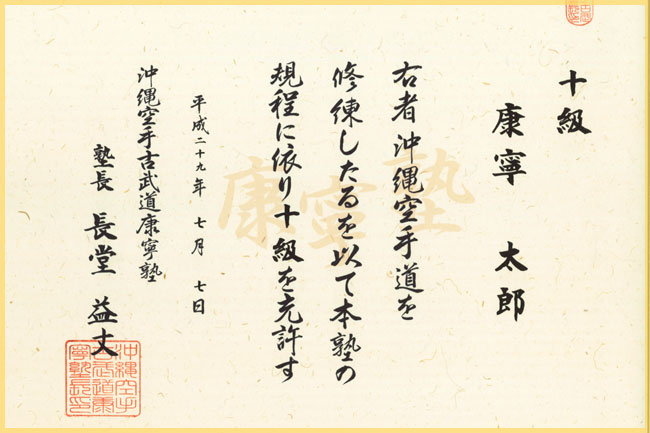 十級
康寧 太郎
右者 沖縄空手道を
修練したるを以て本塾の
規程に依り十級を允許す
平成二十九年 七月 七日
沖縄空手古武道康寧塾
塾長 長堂 益丈
康寧塾
沖縄空手
古武道康
寧塾長印